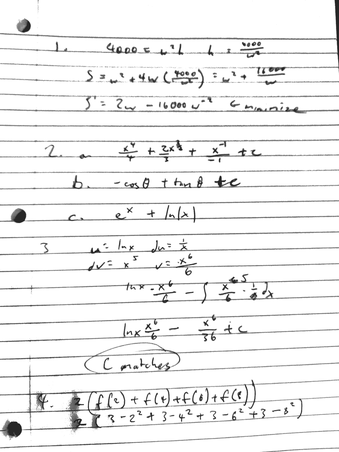 1. 4000 = w²h h = 4000/w²
S = w² + 4w (4000/w²) = w² + 16000/w
S' = 2w - 16000 w⁻² ← minimize
2. a. x⁴/4 + 2x^(3/2)/3 + x⁻¹/-1 + c
b. -cos θ + tan θ + c
c. eˣ + ln|x|
3 u = ln x du = 1/x
dv = x⁵ v = x⁶/6
ln x · x⁶/6 - ∫ x⁵/6 · dx
ln x x⁶/6 - x⁶/36 + c
C matches
4. 2 (f(2) + f(4) + f(6) + f(8))
2 (3 - 2² + 3 - 4² + 3 - 6² + 3 - 8²)